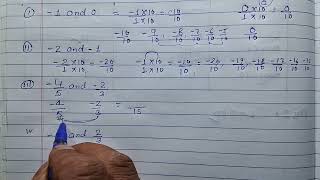 (i) -1 and 0 = -1×10/1×10 = -10/10 0×10/10 = 0/10
-10/10 -9/10, -8/10 -7/10 -6/10 -5/10
(ii) -2 and -1
-2×10/1×10 = -20/10 -1×10/1×10 = -10/10 -19/10 -18/10 -17/10 -16/10 -15/10
(iii) -4/5 and -2/3
-4/5 -2/3 = /15
and 2/3